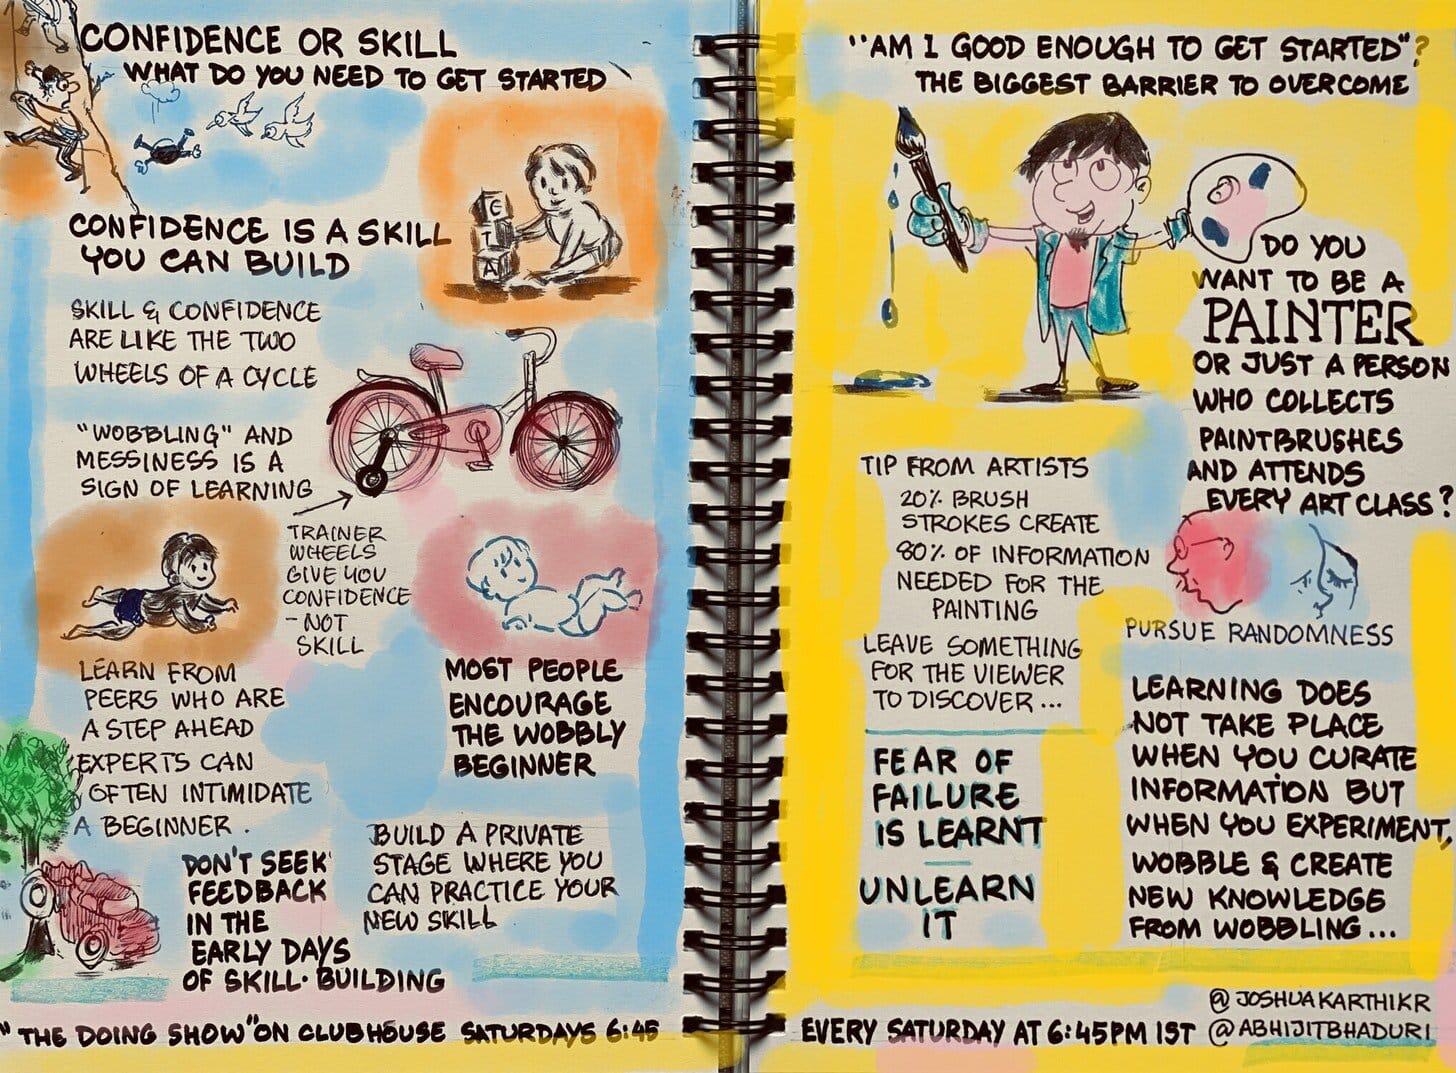 CONFIDENCE OR SKILL
WHAT DO YOU NEED TO GET STARTED
CONFIDENCE IS A SKILL
YOU CAN BUILD
C
T
A
SKILL & CONFIDENCE
ARE LIKE THE TWO
WHEELS OF A CYCLE
"WOBBLING" AND
MESSINESS IS A
SIGN OF LEARNING
TRAINER
WHEELS
GIVE YOU
CONFIDENCE
- NOT
SKILL
LEARN FROM
PEERS WHO ARE
A STEP AHEAD
EXPERTS CAN
OFTEN INTIMIDATE
A BEGINNER.
MOST PEOPLE
ENCOURAGE
THE WOBBLY
BEGINNER
DON'T SEEK
FEEDBACK
IN THE
EARLY DAYS
OF SKILL-BUILDING
BUILD A PRIVATE
STAGE WHERE YOU
CAN PRACTICE YOUR
NEW SKILL
"THE DOING SHOW" ON CLUBHOUSE SATURDAYS 6:45
"AM I GOOD ENOUGH TO GET STARTED"?
THE BIGGEST BARRIER TO OVERCOME
DO YOU
WANT TO BE A
PAINTER
OR JUST A PERSON
WHO COLLECTS
PAINTBRUSHES
AND ATTENDS
EVERY ART CLASS?
TIP FROM ARTISTS
20% BRUSH
STROKES CREATE
80% OF INFORMATION
NEEDED FOR THE
PAINTING
LEAVE SOMETHING
FOR THE VIEWER
TO DISCOVER...
FEAR OF
FAILURE
IS LEARNT
UNLEARN
IT
PURSUE RANDOMNESS
LEARNING DOES
NOT TAKE PLACE
WHEN YOU CURATE
INFORMATION BUT
WHEN YOU EXPERIMENT,
WOBBLE & CREATE
NEW KNOWLEDGE
FROM WOBBLING...
@JOSHUAKARTHIKR
EVERY SATURDAY AT 6:45PM IST @ABHIJITBHADURI